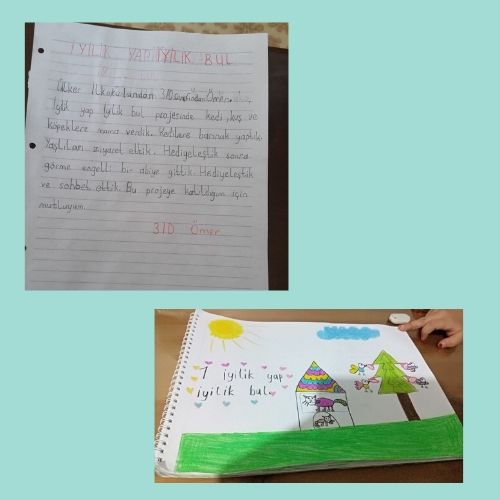 İYİLİK YAP İYİLİK BUL
Ülker İlkokulundan 3/D sınıfından Ömer.
İyilik yap iyilik bul projesinde kedi, kuş ve
köpeklere mama verdik. Kedilere barınak yaptık.
Yaşlıları ziyaret ettik. Hediyeleştik sonra
görme engelli bir abiye gittik. Hediyeleştik
ve sohbet ettik. Bu projeye katıldığım için
mutluyum.
3/D Ömer
1 iyilik yap
iyilik bul.